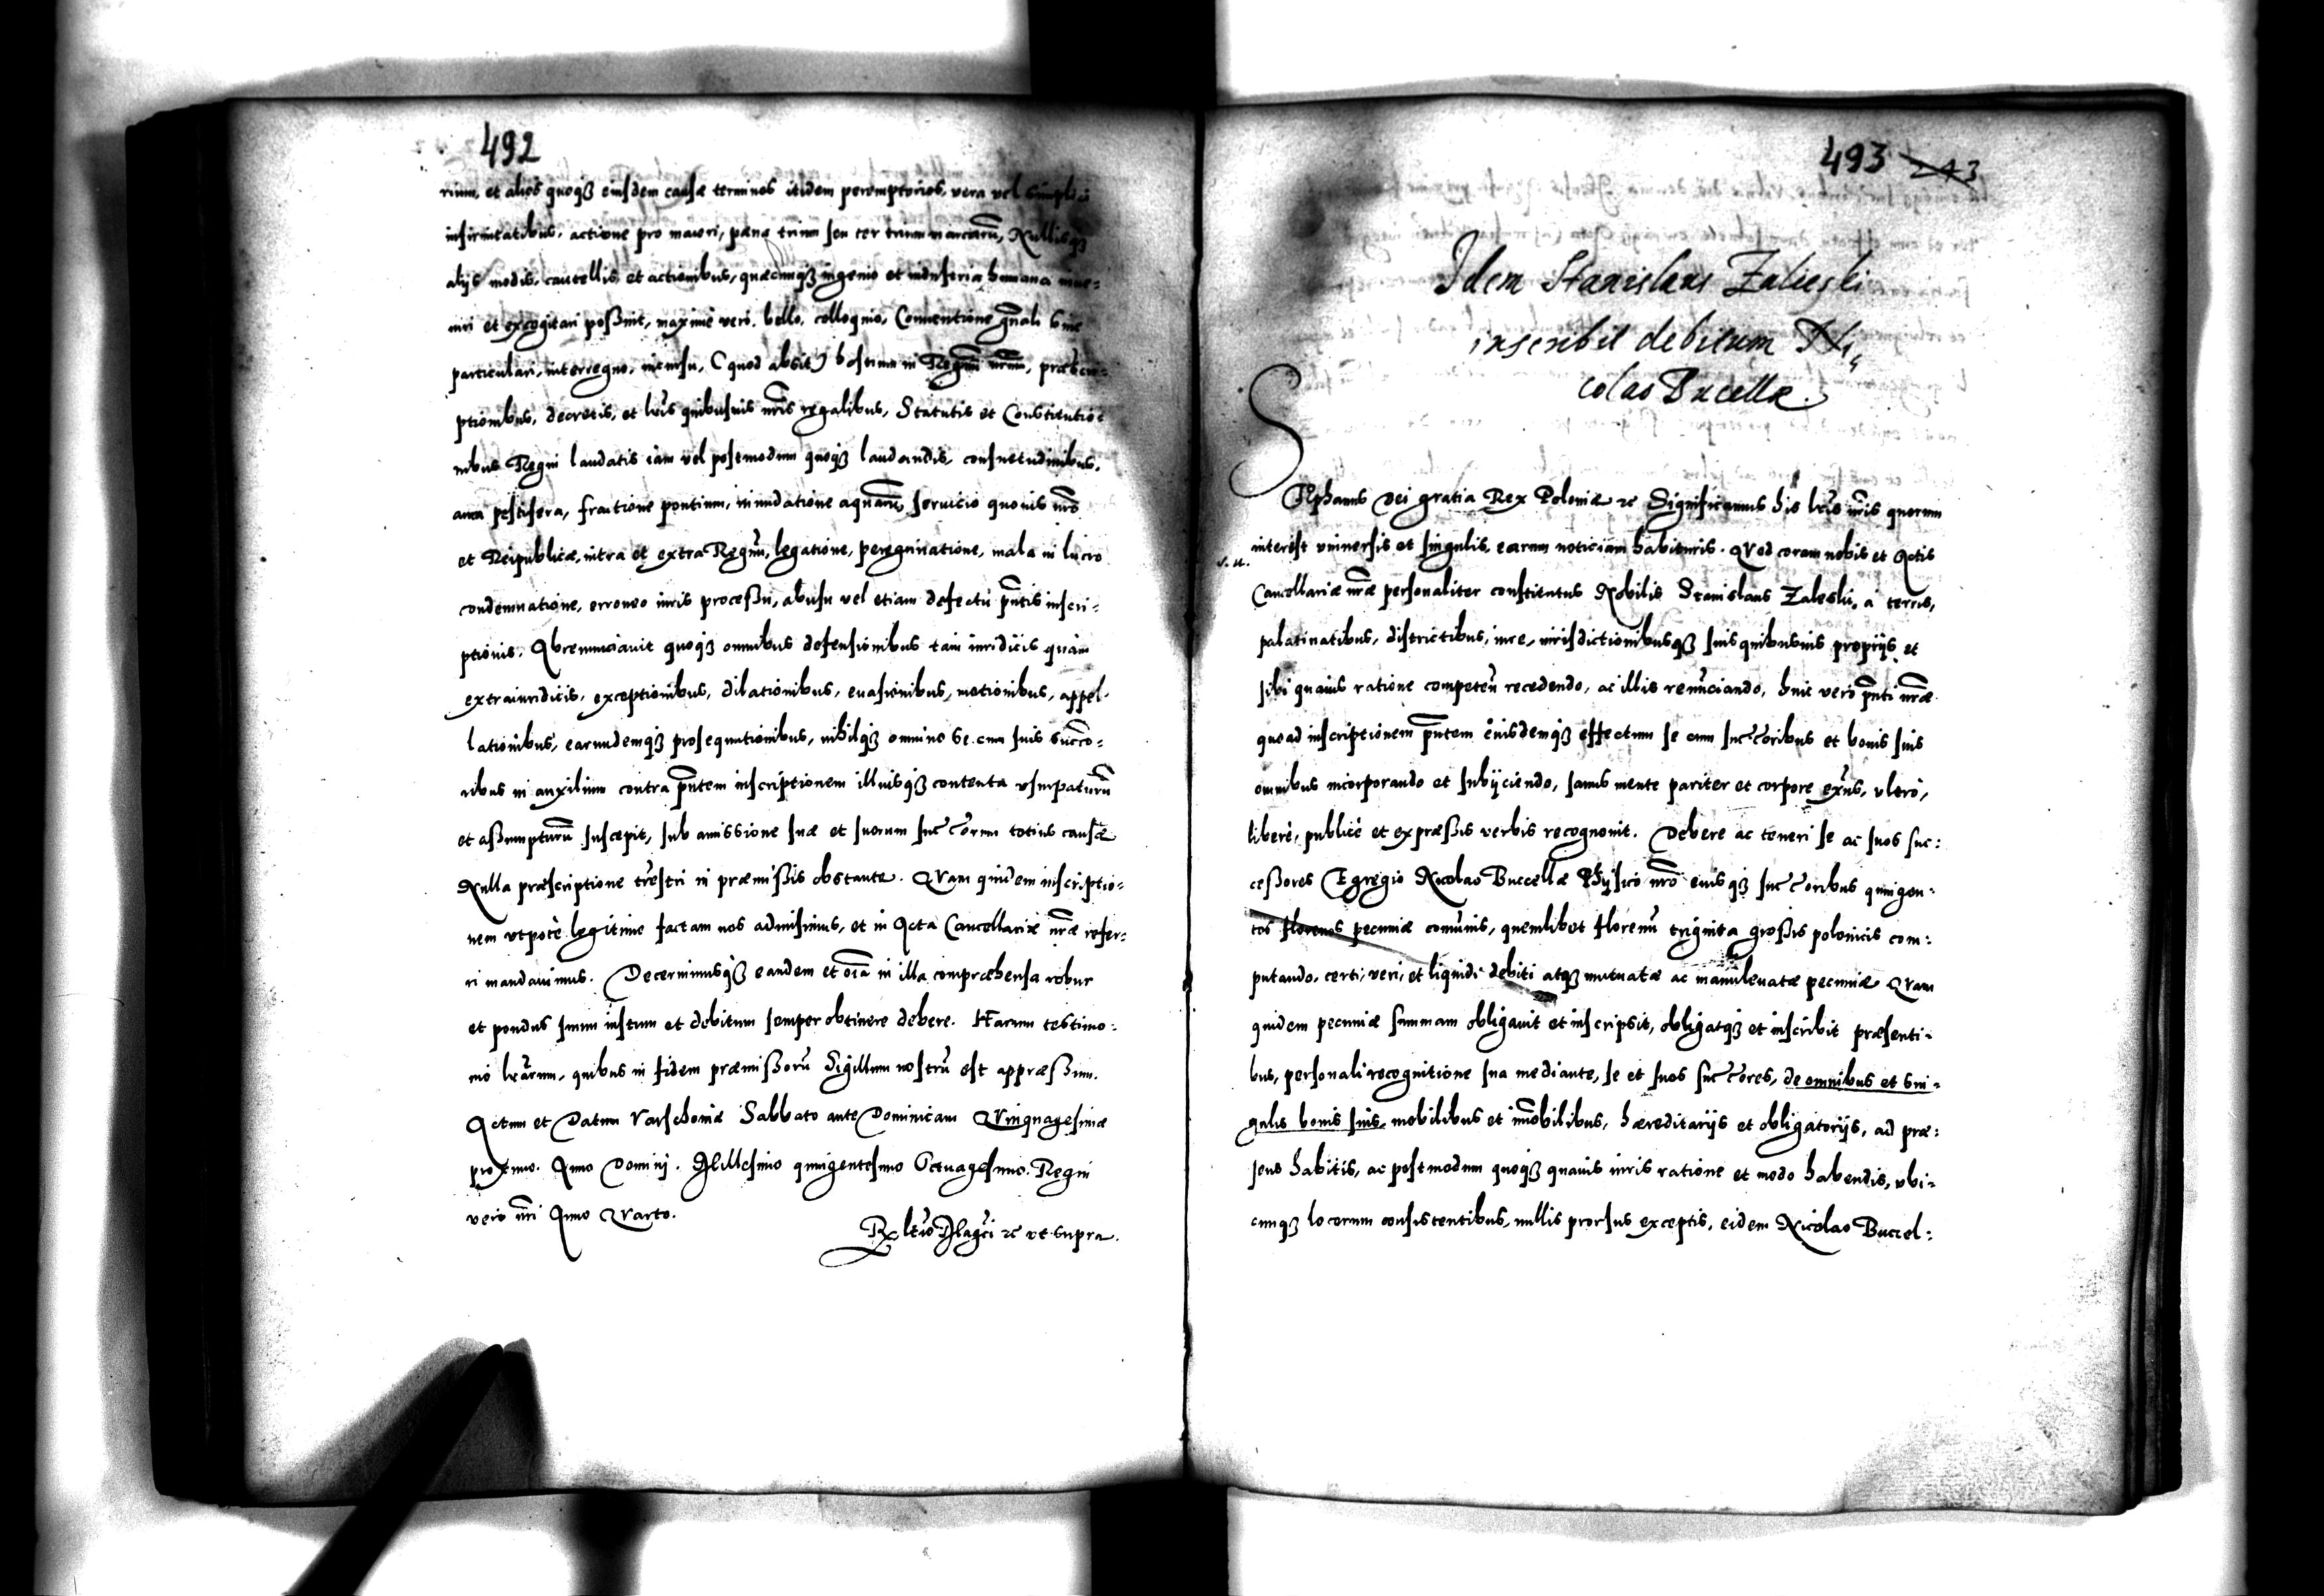 492
rium, et alios quoqz eiusdem causæ terminos itidem peremptorios, vera vel simplici
infirmitatibus, actione pro maiori, pæna trium seu ter trium marcarũ, Nullisqz
alijs modis, cautellis et actionibus, quæcunqz ingenio et industria humana inue=
niri et excogitari possint, maxime vero, bello, colloquio, Conuentione gñali siue
particulari, interregno, incursu, (quod absit) hostium in Regnum nrum, præscri=
ptionibus, decretis, et lris quibusuis nris regalibus, Statutis et Constitutio=
nibus Regni laudatis iam vel postmodum quoqz laudandis, consuetudinibus,
aura pestifera, fractione pontium, inundatione aquarũ, seruicio quouis nro
et Reipublicæ, intra et extra Regnũ, legatione, peregrinatione, mala in lucro
condemnatione, erroneo iuris processu, abusu vel etiam defectu pñtis inscri=
ptionis. Abrenunciauit quoqz omnibus defensionibus tam iuridicis quàm
extraiuridicis, exceptionibus, dilationibus, euasionibus, motionibus, appel=
lationibus, earundemqz prosequutionibus, nihilqz omnino se cum suis succõ=
ribus in auxilium contra pñtem inscriptionem illiusqz contenta vsurpaturũ
et assumpturũ suscepit, sub amissione suæ et suorum succorum totius causæ
Nulla præscriptione trestri in præmissis obstante. Quam quidem inscriptio=
nem vtpotè legitime factam nos admisimus, et in Acta Cancellariæ nræ refer=
ri mandauimus. Decernimusqz eandem et oia in illa compræhensa robur
et pondus suum iustum et debitum semper obtinere debere. Harum testimo=
nio lrarum, quibus in fidem præmissorũ Sigillum nostrũ est appræssum.
Actum et Datum Varschouiæ Sabbato ante Dominicam Quinquagesimæ
proximo. Anno Domini. Millesimo quingentesimo Octuagesimo. Regni
vero nri Anno Quarto.
Rx ltio Magci &c vt supra.
493 243
Idem Stanislaus Zalieski
inscribit debitum Ni=
colao Bucellæ.
Stephanus Dei gratia Rex Poloniæ &c Significamus his lris nris quorum
interest vniuersis et singulis, earum noticiam habituris. Quod coram nobis et Actis
Cancellariæ nræ personaliter constitutus Nobilis Stanislaus Zaleski, a terris,
palatinatibus, districtibus, iure, iurisdictionibusqz suis quibusuis proprijs et
sibi quauis ratione competeñ recedendo, ac illis renũciando, huic verò pñti nræ
quoad inscriptionem pñtem eiusdemqz effectum se cum succoribus et bonis suis
omnibus incorporando et subijciendo, sanus mente pariter et corpore exñs, vltrò,
liberè, publicè et expræssis verbis recognouit. Debere ac teneri se ac suos suc:
cessores Egregio Nicolao Buccellæ Physico nro eiusqz succoribus quingen:
tos florenos pecuniæ comũnis, quemlibet florenũ triginta grossis polonicis com:
putando, certi, veri, et liquidi debiti atqz mutuatæ ac manuleuatæ pecuniæ Quam
quidem pecuniæ summam obligauit et inscripsit, obligatqz et inscribit præsenti=
bus, personali recognitione sua mediante, se et suos succores, de omnibus et sin=
gulis bonis suis, mobilibus et imobilibus, hæreditarijs et obligatorijs, ad præ:
sens habitis, ac postmodum quoqz quauis iuris ratione et modo habendis, vbi=
cunqz locorum consistentibus, nullis prorsus exceptis, eidem Nicolao Buccel: